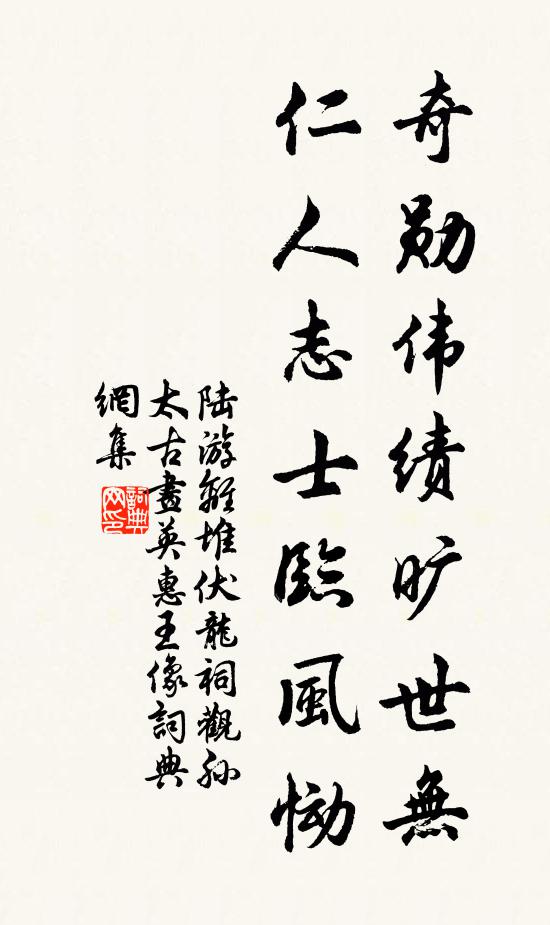 奇勋伟绩旷世無
仁人志士臨風恸
陆游離堆伏龍祠觀孙
太古畫英惠王像詞典
網集
詞典
网印